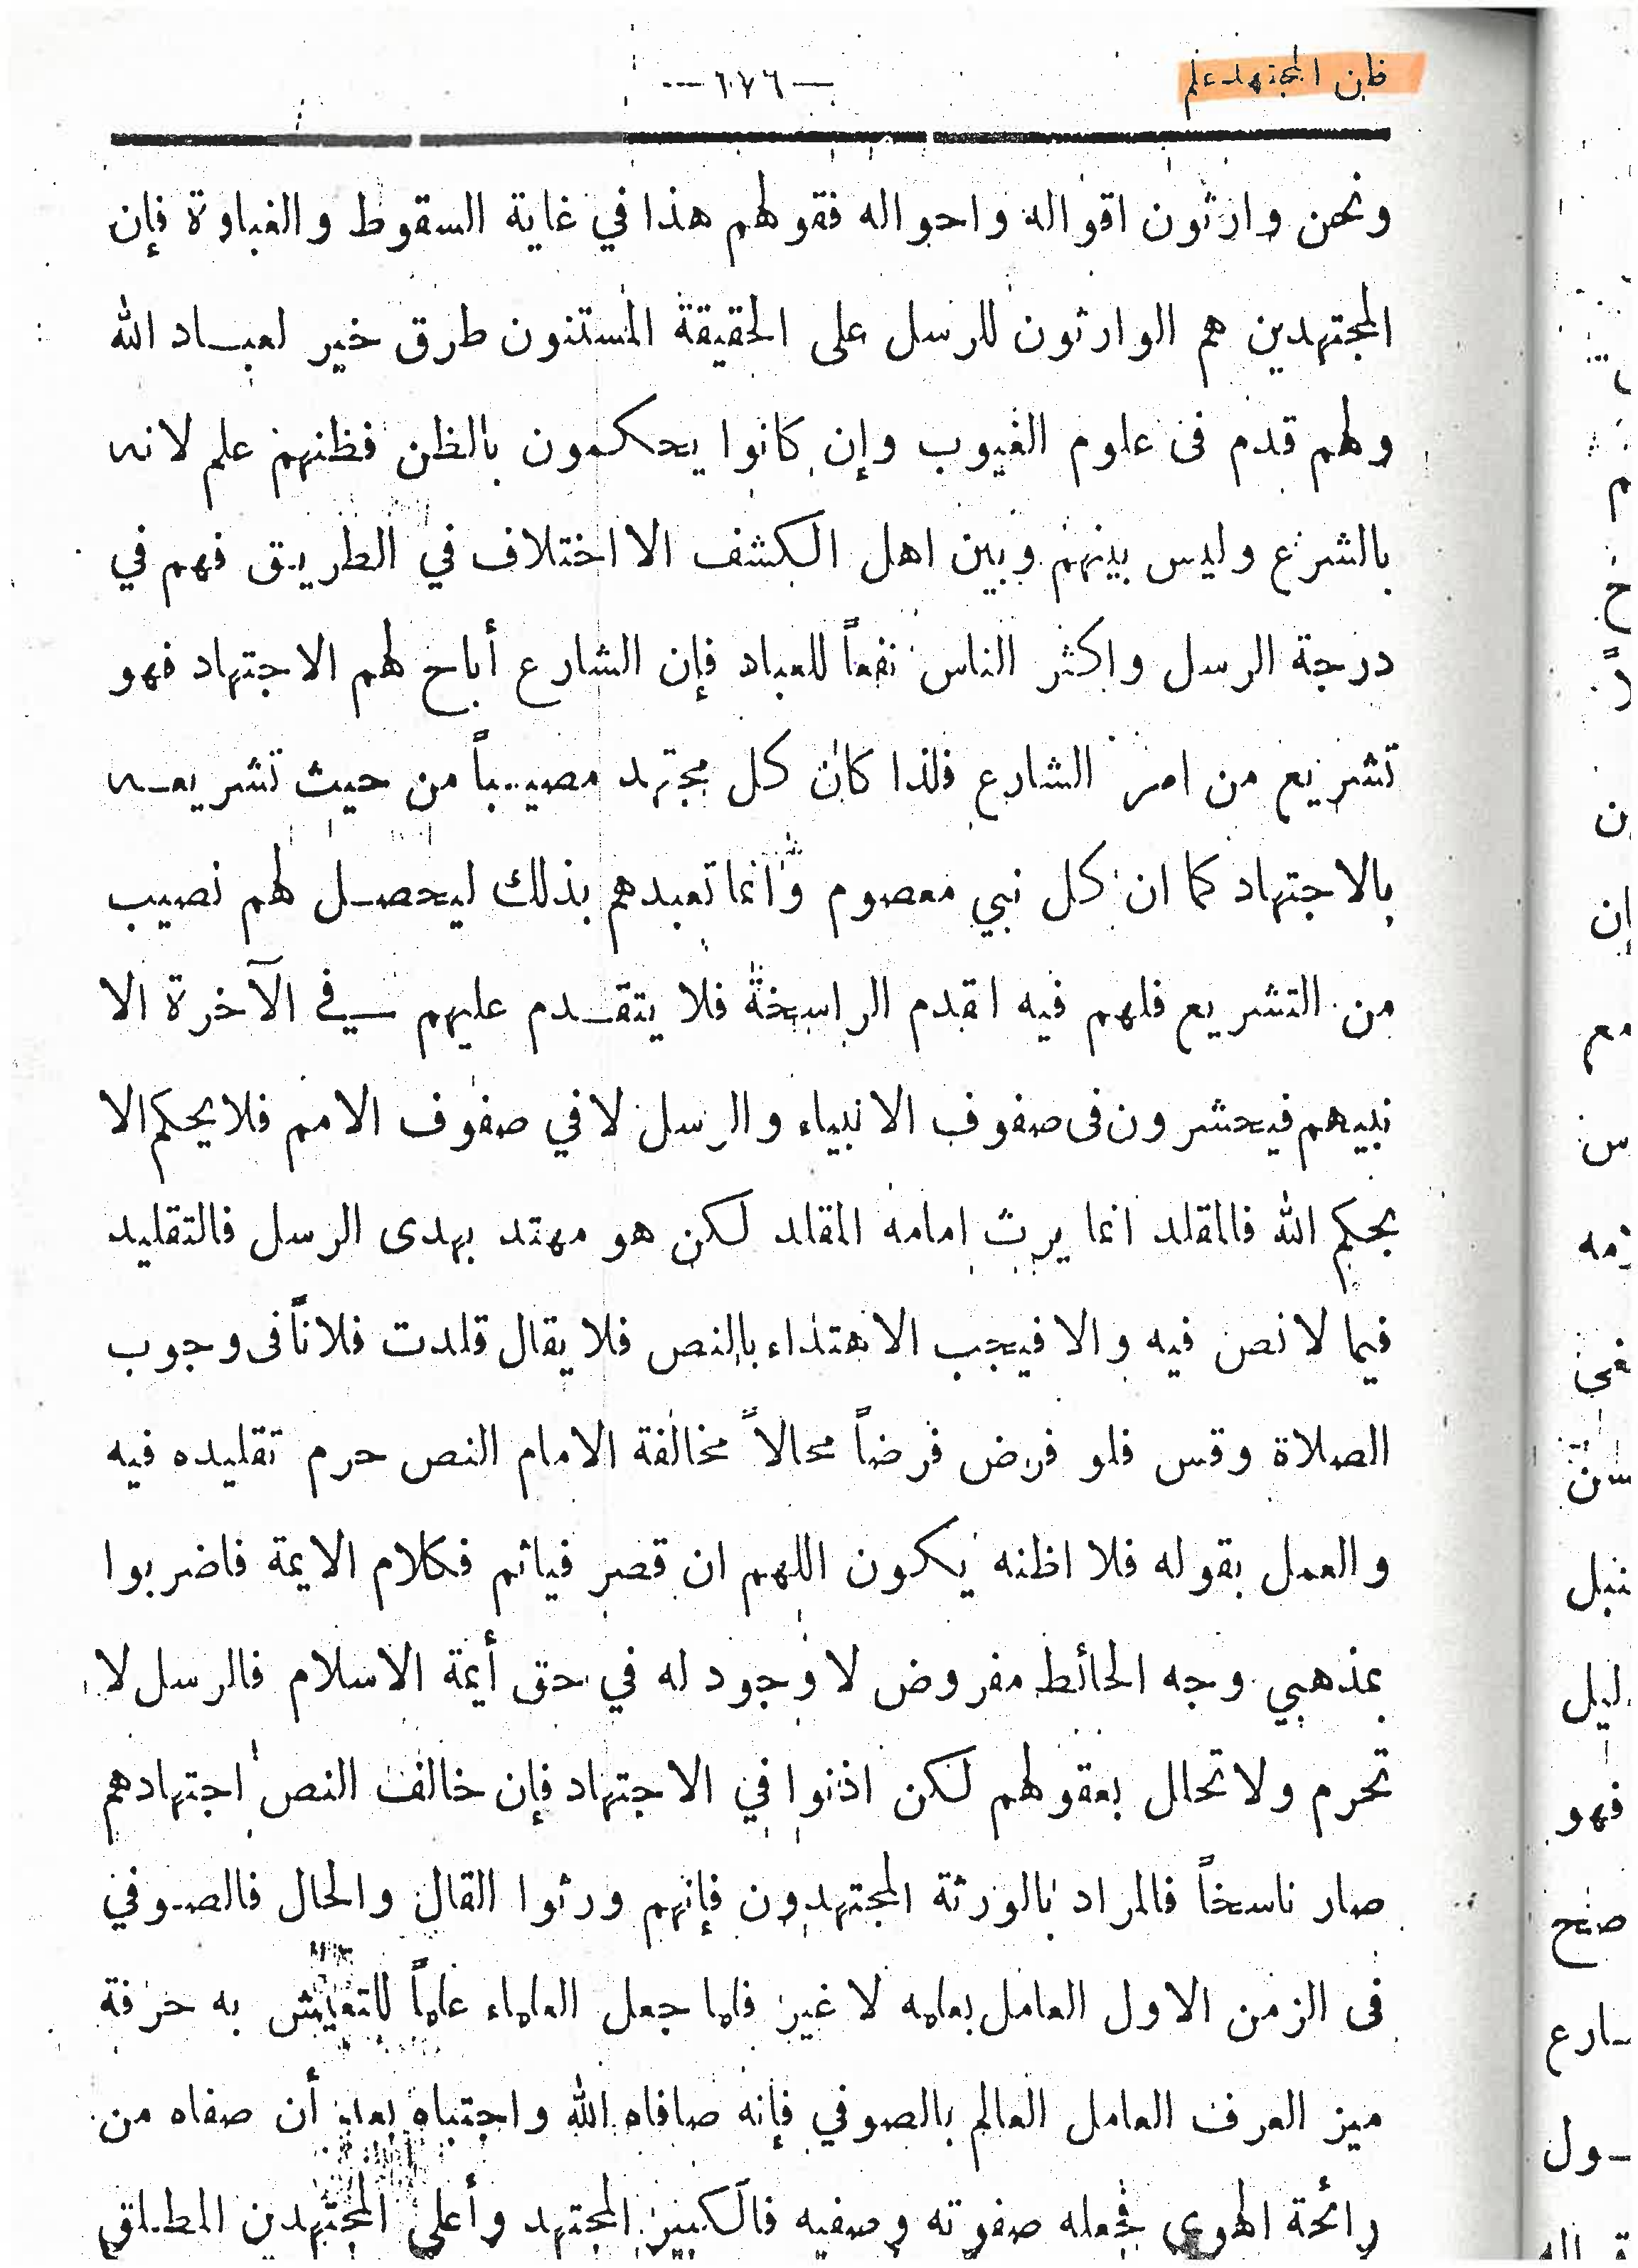 فإن المجتهد علم
— ٦٧٦ —
ونحن وارثون اقواله واحواله فقولهم هذا في غاية السقوط والغباوة فإن
المجتهدين هم الوارثون للرسل على الحقيقة المستنون طرق خير لعباد الله
ولهم قدم فى علوم الغيوب وإن كانوا يحكمون بالظن فظنهم علم لانه
بالشرع وليس بينهم وبين اهل الكشف الا اختلاف في الطريق فهم في
درجة الرسل واكثر الناس نفعاً للعباد فإن الشارع أباح لهم الاجتهاد فهو
تشريع من امر الشارع فلذا كان كل مجتهد مصيباً من حيث تشريعه
بالاجتهاد كما ان كل نبي معصوم وانما تعبدهم بذلك ليحصل لهم نصيب
من التشريع فلهم فيه اقدم الراسخة فلا يتقدم عليهم في الآخرة الا
نبيهم فيحشرون فى صفوف الانبياء والرسل لا في صفوف الامم فلا يحكم الا
بحكم الله فالمقلد انما يرث امامه المقلد لكن هو مهتد بهدى الرسل فالتقليد
فيما لا نص فيه والا فيجب الاهتداء بالنص فلا يقال قلدت فلاناً فى وجوب
الصلاة وقس فلو فرض فرضاً محالاً مخالفة الامام النص حرم تقليده فيه
والعمل بقوله فلا اظنه يكون اللهم ان قصر فياثم فكلام الايمة فاضربوا
بمذهبي وجه الحائط مفروض لا وجود له في حق أيمة الاسلام فالرسل لا
تحرم ولا تحلل بعقولهم لكن اذنوا في الاجتهاد فإن خالف النص اجتهادهم
صار ناسخاً فالمراد بالورثة المجتهدون فإنهم ورثوا القال والحال فالصوفي
فى الزمن الاول العامل بعلمه لا غير فلما جعل العلماء علماً للتعيش به حرفة
ميز العرف العامل العالم بالصوفي فإنه صافاه الله واجتباه بعد أن صفاه من
رائحة الهوى فجعله صفوته وصفيه فالكبير المجتهد وأعلى المجتهدين المطلق